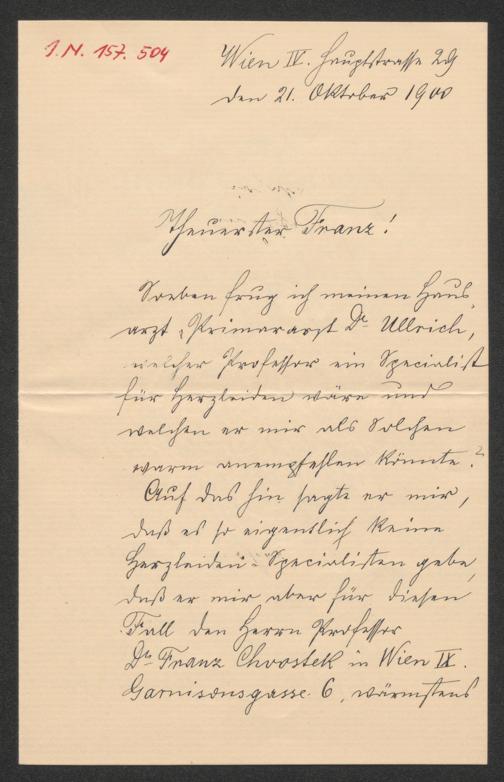 J. N. 157. 504
Wien IV. Hauptstrasse 29
den 21. Oktober 1900
Theuerster Franz!
Soeben frug ich meinen Haus-
arzt, Primararzt Dr Ullrich,
welcher Professor ein Specialist
für Herzleiden wäre und
welchen er mir als Solchen
warm anempfehlen könnte?
Auf das hin sagte er mir,
daß es so eigentlich keine
Herzleiden-Specialisten gebe,
daß er mir aber für diesen
Fall den Herrn Professor
Dr Franz Chvostek in Wien IX.
Garnisonsgasse 6, wärmstens